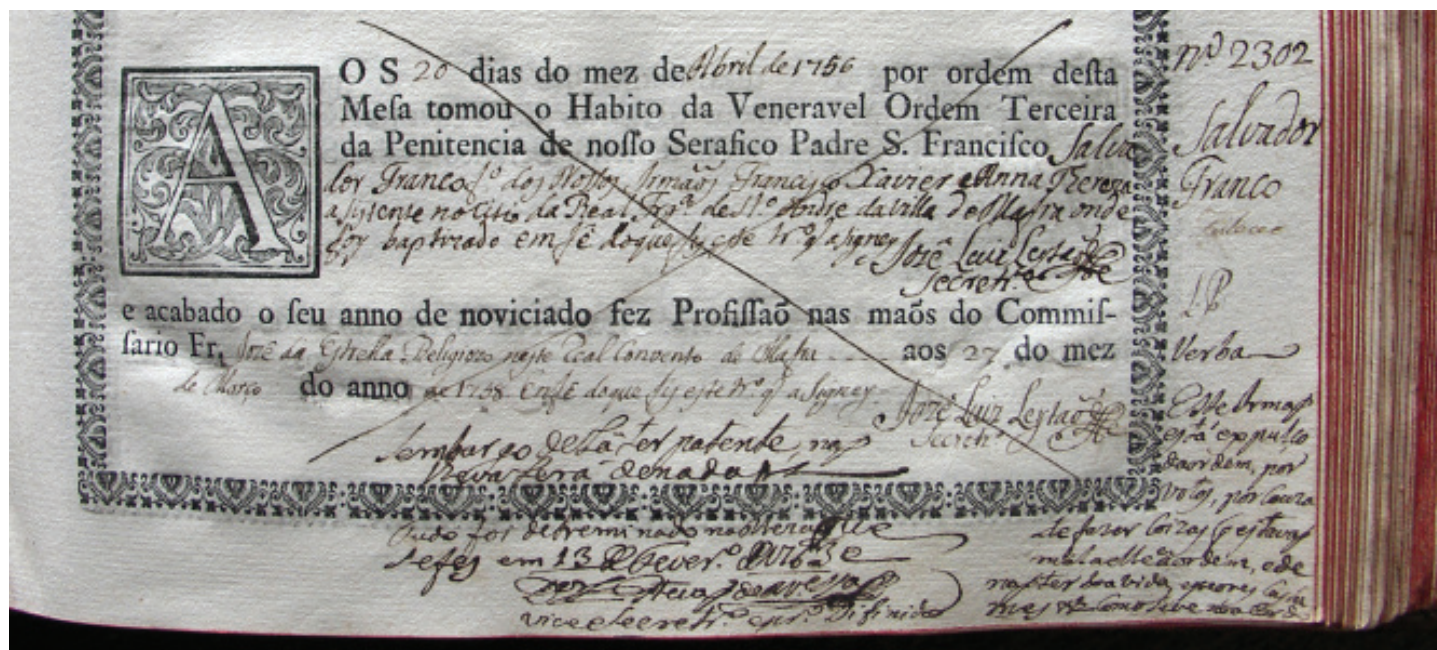 AOS 20 dias do mez de Abril de 1756 por ordem desta
Mesa tomou o Habito da Veneravel Ordem Terceira
da Penitencia de nosso Serafico Padre S. Francisco Salva
dor Franco f.º dos Nossos Irmãos Francisco Xavier e Anna Thereza
asistente no citio da Real Frg.ª de S.tº Andre da Villa de Mafra onde
foy baptizado em fé do que fiz este tr.º q asigney Jozé Luiz Leytaõ
Secretr.º
e acabado o seu anno de noviciado fez Profissaõ nas maõs do Commis-
sario Fr. Jozé da Estrella Religiozo neste Real Convento de Mafra aos 27 do mez
de Março do anno de 1758. Em fé do que fiz este tr.º q asigney
Jozé Luiz Leytaõ
Secretr.º
Sem bargo de la ter patente, naõ
leva será de nada
Tudo foi detreminado na Meza que
se fes em 13 de Fever.º de
vice Secretr.º Difinidor
nº 2302
Salvador
Franco
Verba
Este Irmaõ
está expulço
da ordem, por
votos, por cauza
de fazer coizas q estavaõ
mal a elle a ordem, e de
naõ ter boa vida, e piores custu
mes